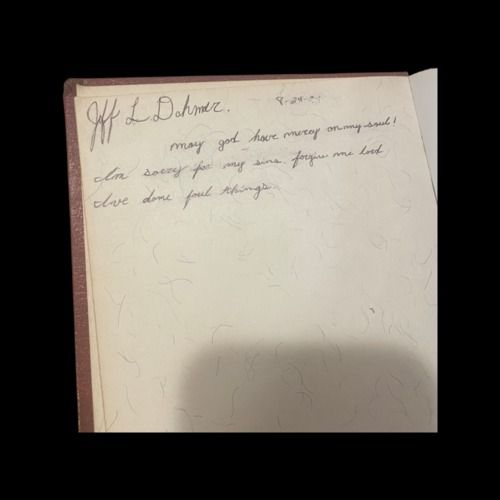 Jff L Dahmer. 8-24-
may god have mercy on my soul!
Im sorry for my sins. forgive me lord
Ive done foul things.